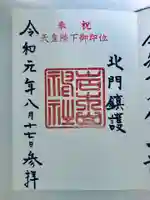 奉祝
天皇陛下御即位
北門鎮護
岩木山
神社
令和元年八月十七日参拝